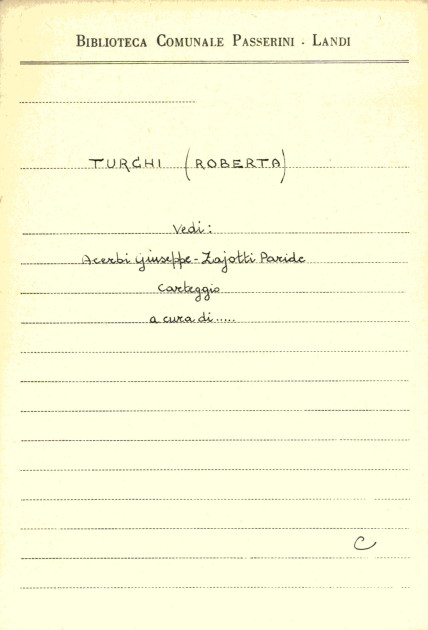 BIBLIOTECA COMUNALE PASSERINI - LANDI
TURCHI (ROBERTA)
Vedi:
Acerbi Giuseppe - Zajotti Paride
Carteggio
a cura di.....
C